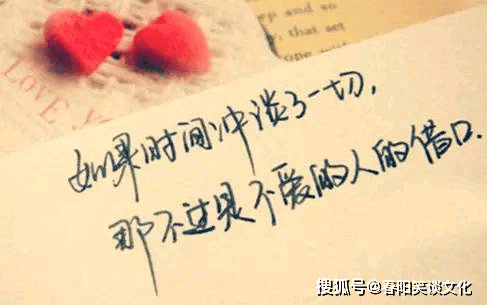 LOVE YO
ep and so
that set
open with
如果时间冲淡了一切,
那不过是不爱的人的借口.
搜狐号@春阳笑谈文化